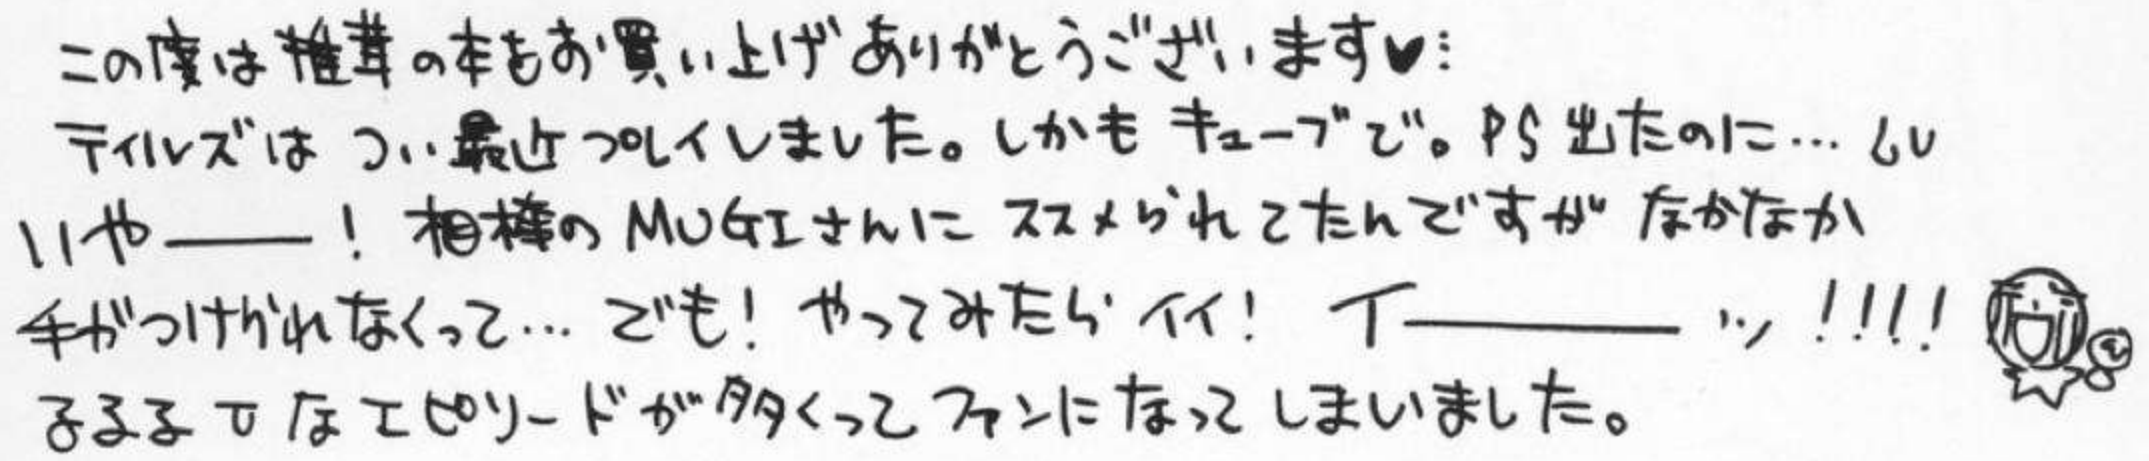 この度は椎茸の本をお買い上げありがとうございます♥:
テイルズは つい最近プレイしました。しかも キューブで。PS出たのに…
いや――! 相棒のMUGIさんに ススメられてたんですが なかなか
手がつけられなくって… でも! やってみたら イイ! イ――――ッ!!!!
るるるTなエピソードが多くってファンになってしまいました。